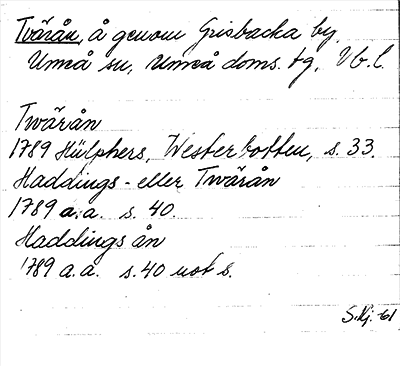 Tvärån, å genom Grisbacka by,
Umeå sn, Umeå doms. tg, Vb. l.
Twärån
1789 Hülphers, Westerbotten, s. 33.
Haddings- eller Twärån
1789 a.a. s. 40.
Haddings ån
1789 a.a. s. 40 not s.
S.Kj. -61